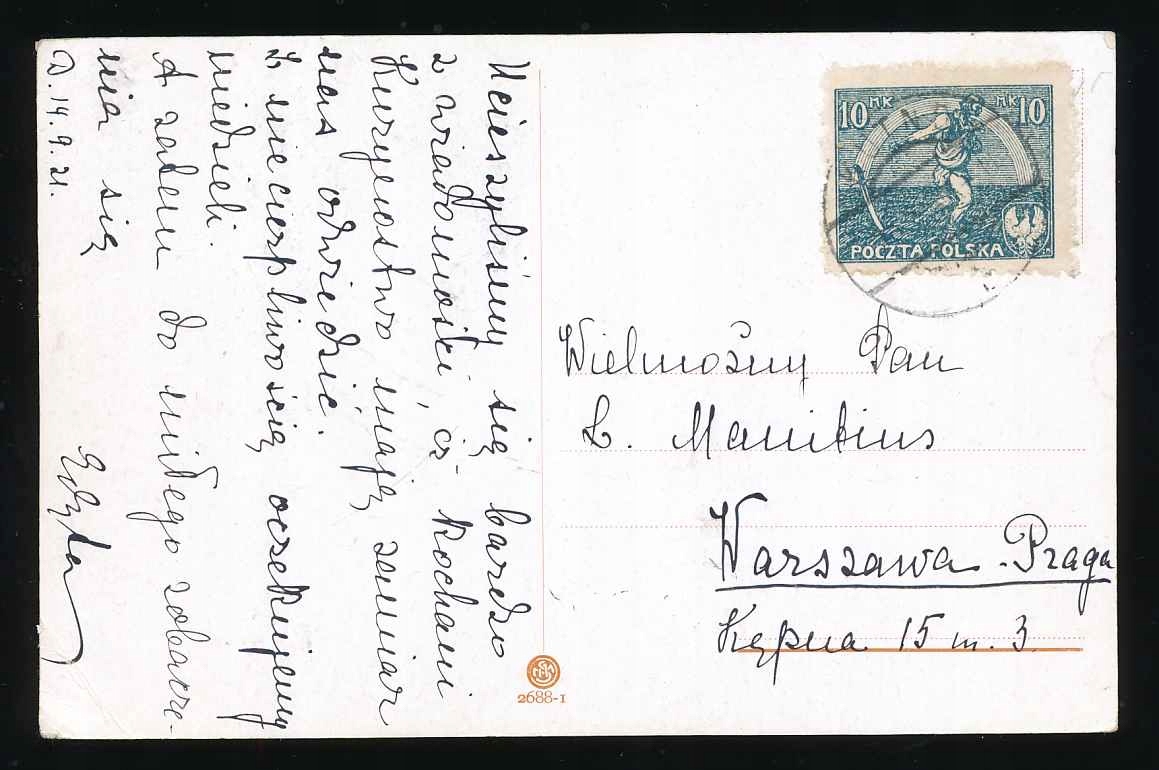 Ucieszyliśmy się bardzo
z wiadomości, iż Kochani
Kurzyjostwo mają zamiar
nas odwiedzić.
Z niecierpliwością oczekujemy
niedzieli.
A zatem do miłego zobacze-
nia się
D. 14. 9. 21.
Edyta
10 MK MK 10
POCZTA POLSKA
Wielmożny Pan
L. Manitius
Warszawa - Praga
Kępna 15 m. 3.
2688-I